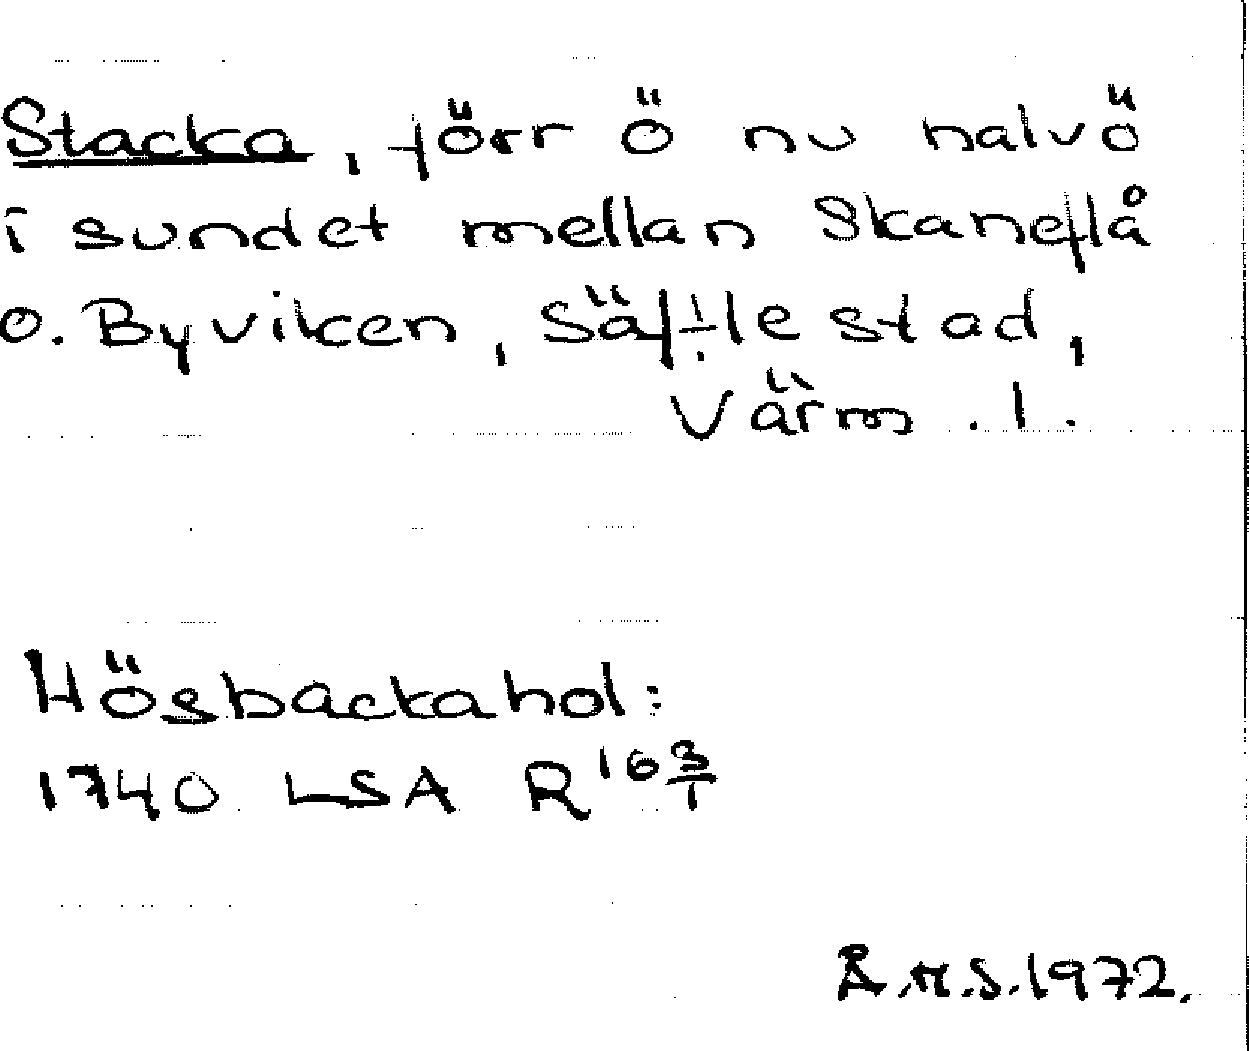 Stacka, förr ö nu halvö
i sundet mellan Skaneflå
o. Byviken, Säffle stad,
Värm. l.
Hösbackahol:
1740 LSA R 16 3/1
Å.H.S. 1972.